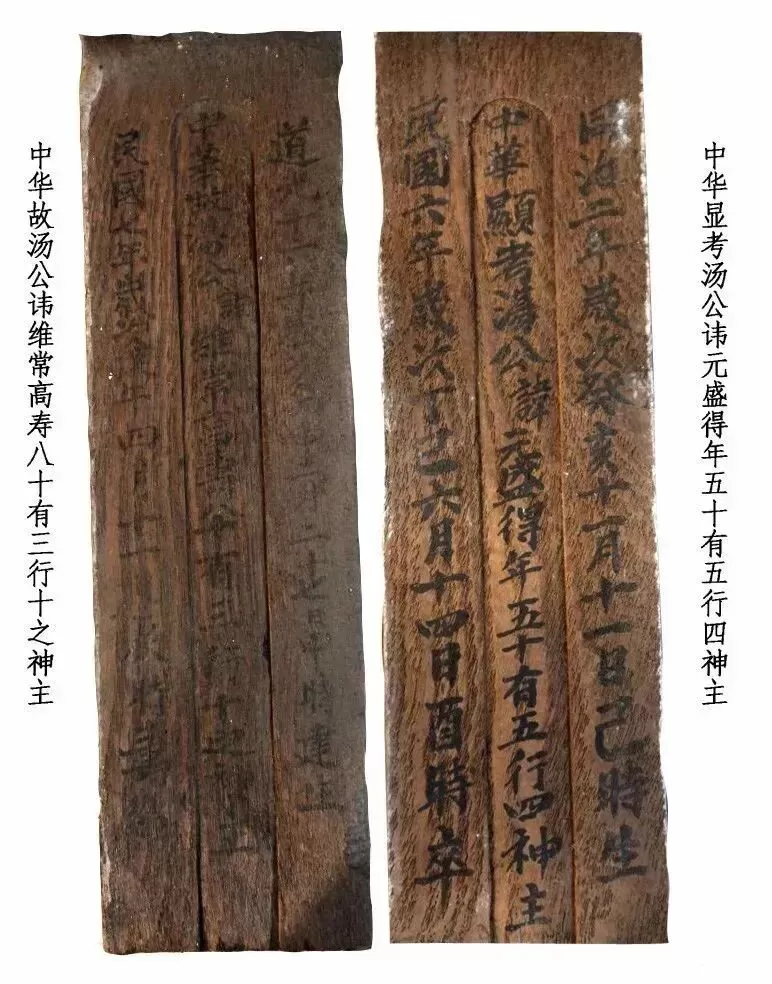 中华显考汤公讳元盛得年五十有五行四神主
同治二年歲次癸亥十一月十一日己時生
中華顯考湯公諱元盛得年五十有五行四神主
民國六年歲次丁巳六月十四日酉時卒
道二十七日申時建生
中華故湯公諱維常高壽八十有三行十之神主
民國七年歲次午四月十一時
中华故汤公讳维常高寿八十有三行十之神主